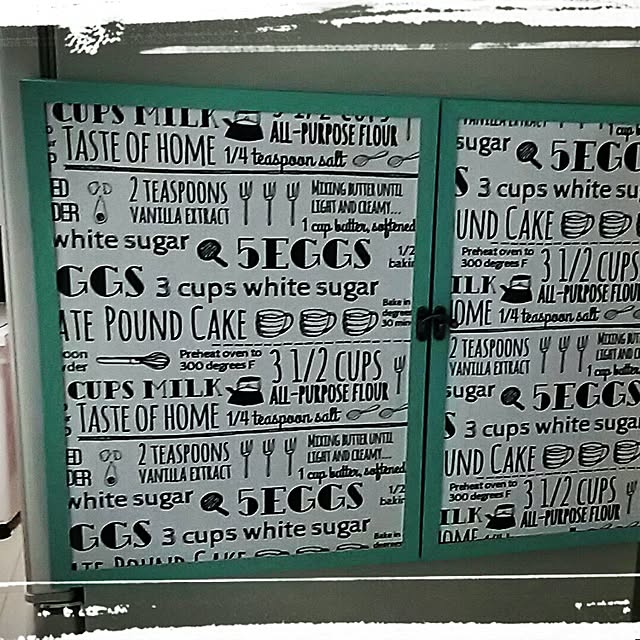 CUPS MILK 3 1/2 CUPS
ALL-PURPOSE FLOUR
TASTE OF HOME 1/4 teaspoon salt
ED
DER
2 TEASPOONS
VANILLA EXTRACT
MIXING BUTTER UNTIL
LIGHT AND CREAMY...
1 cup butter, softened
white sugar 5EGGS 1/2
bakin
GGS 3 cups white sugar
ATE POUND CAKE
Bake in
degrees
30 min
oon
wder
Preheat oven to
300 degrees F
3 1/2 CUPS
ALL-PURPOSE FLOUR
CUPS MILK
TASTE OF HOME 1/4 teaspoon salt
ED
DER
2 TEASPOONS
VANILLA EXTRACT
MIXING BUTTER UNTIL
LIGHT AND CREAMY...
1 cup butter, softened
white sugar 5EGGS 1/2
bakin
GGS 3 cups white sugar
Bake in
degrees
ATE POUND CAKE
VANILLA EXTRACT
1 cup
sugar 5EGG
S 3 cups white su
UND CAKE
Preheat oven to
300 degrees F
3 1/2 CUPS
ALL-PURPOSE FLOUR
ILK
OME 1/4 teaspoon salt
2 TEASPOONS
VANILLA EXTRACT
MIXING BU
LIGHT AND C
1 cup bu
sugar 5EGGS
S 3 cups white suga
UND CAKE
Preheat oven to
300 degrees F
3 1/2 CUPS
ALL-PURPOSE FLOUR
ILK
OME 1/4 teaspoon salt